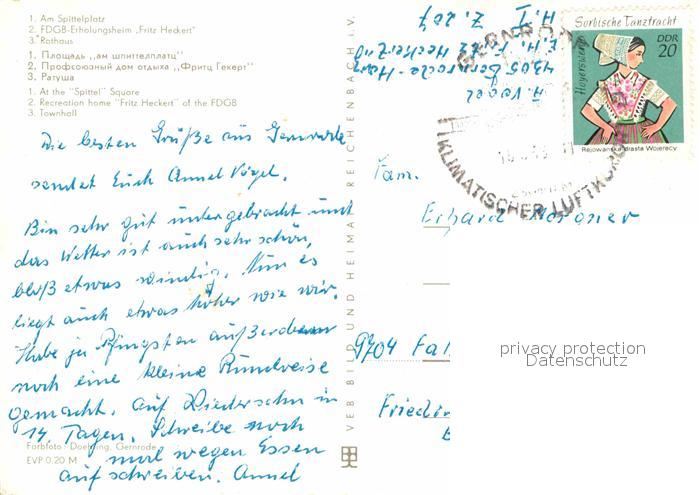 1. Am Spittelplatz
2. FDGB-Erholungsheim „Fritz Heckert"
3. Rathaus
1. Площадь „ам шпиттелплатц"
2. Профсоюзный дом отдыха „Фритц Гекерт"
3. Ратуша
1. At the "Spittel" Square
2. Recreation home "Fritz Heckert" of the FDGB
3. Townhall
Die besten Grüße aus Gernrode
sendet Euch Annel Vogel.
Bin sehr gut untergebracht und
das Wetter ist auch sehr schön,
bloß etwas windig. Nun es
liegt auch etwas höher wie wir.
Habe ja Pfingsten außerdem
noch eine kleine Rundreise
gemacht. Auf Wiedersehn in
14 Tagen. Schreibe noch
mal wegen Essen
aufschreiben. Annel
Farbfoto: Doehring, Gernrode
EVP 0.20 M
VEB BILD UND HEIMAT REICHENBACH i. V.
A. Vogel
4305 Gernrode-Harz
E. H. Fritz Heckert
H. I Z. 207
GERNRODE
KLIMATISCHER LUFTKURORT
Sorbische Tanztracht
DDR
20
Hoyerswerda
Rejowanska drasta Wojerecy
Fam.
Erhard
9704 Fal
Friedr
privacy protection
Datenschutz